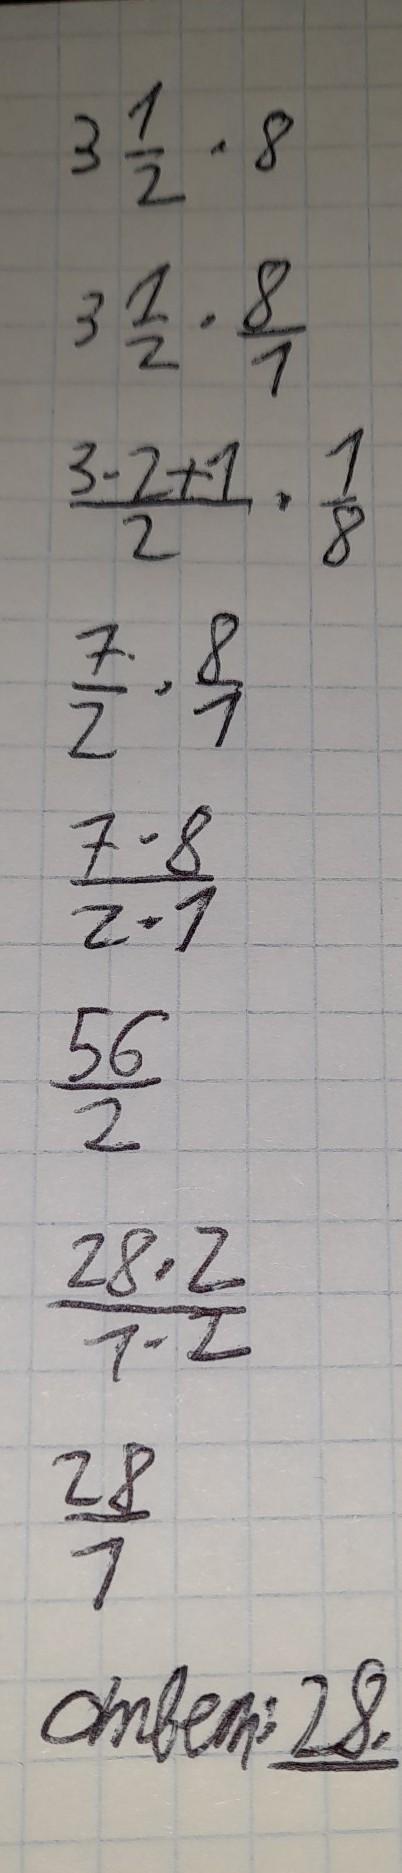 3 1/2 · 8
3 1/2 · 8/1
(3·2+1)/2 · 1/8
7/2 · 8/1
(7·8)/(2·1)
56/2
(28·2)/(1·2)
28/1
ответ: 28.